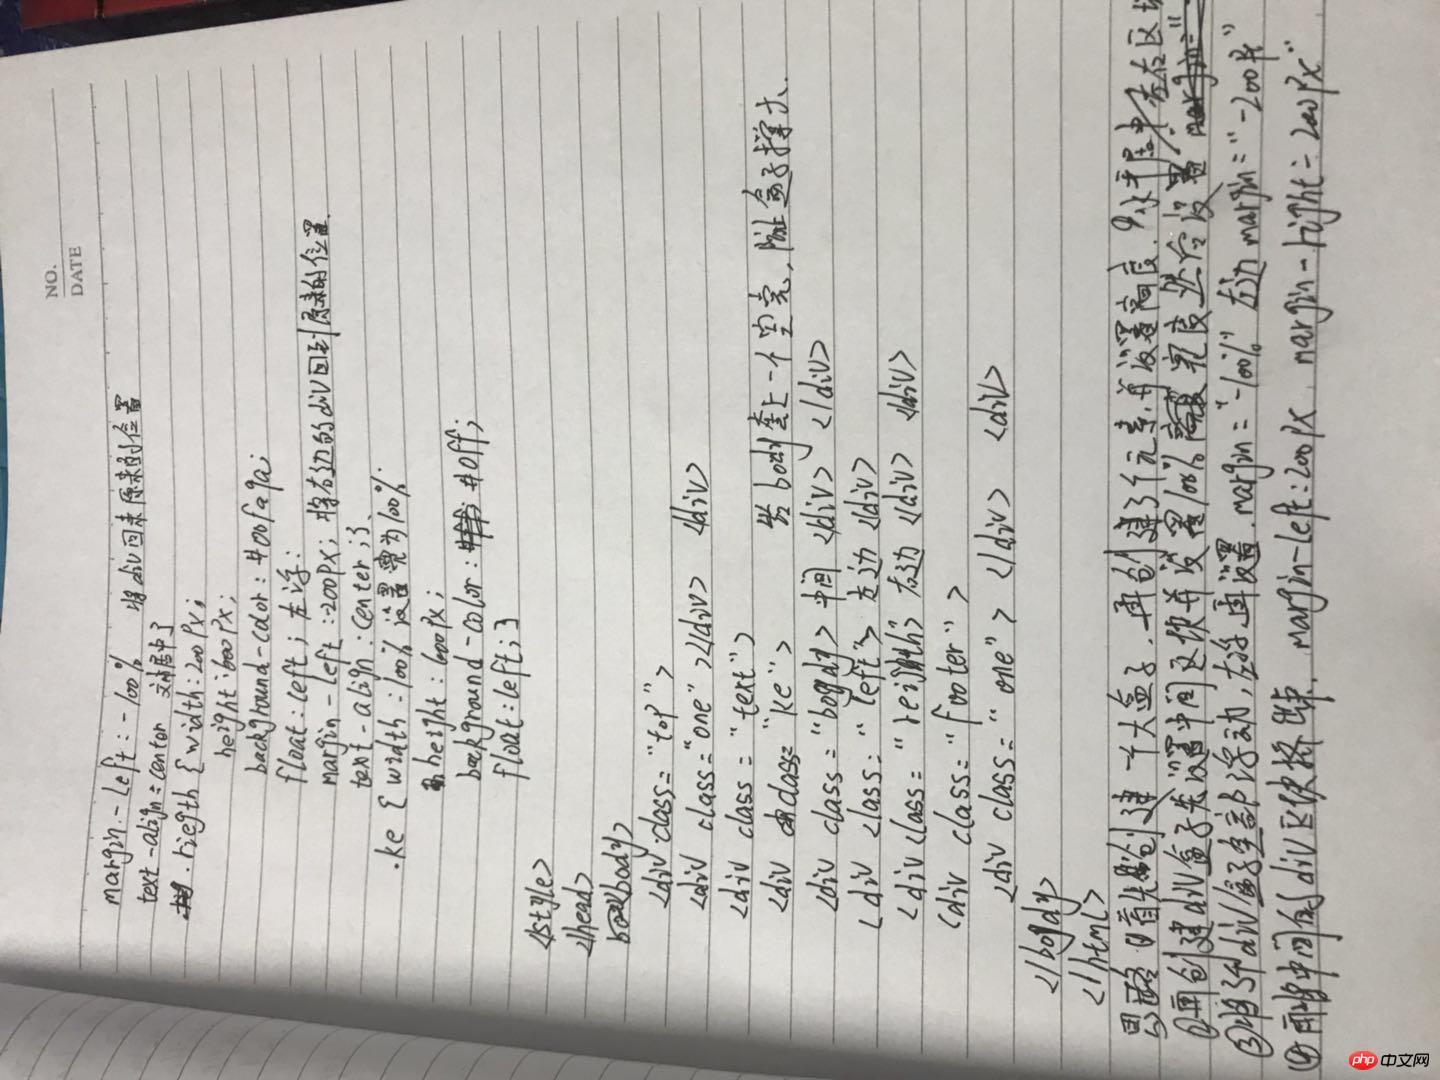 NO.
DATE
margin-left:-100% 将div回来原来的位置
text-align=center 文本居中}
.riegth {width:200px;
height:600px;
background-color:#00faga;
float:left; 左浮:
margin-left:-200px; 将右边的div回到原来的位置.
text-align:center;}
.ke {width:100% 设置宽为100%.
height:600px;
background-color: #0ff;
float:left;}
</style>
</head>
<body>
<div class="top">
<div class="one"></div> <div>
<div class="text">
<div class="ke"> 给body套上一个空壳, 防止盒子撑大.
<div class="bogdy> 中间 </div> </div>
<div class="left"> 左边 </div>
<div class="reigth> 右边 </div> </div>
<div class="footer">
<div class="one"> </div> <div>
</bogdy>
</html>
思路 ①首先创建一个大盒子. 再创建3个元素并设置高度. 水平居中 左右区块
②再创建div盒子先设置中间区块并设置100%宽度然后设置
③将3个div盒子全部浮动, 左浮再设置. margin="-100%" 右边margin="-200px"
④再将中间的div区块挤出来. margin-left:200px. margin-right=200px"
php 中文网